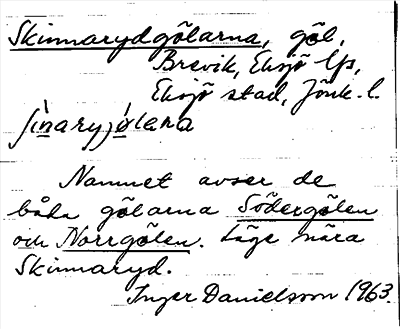 Skinnarydgölarna, göl,
Brevik, Eksjö lfs,
Eksjö stad, Jönk. l.
ʃìnaryjø̀lana
Namnet avser de
båda gölarna Södergölen
och Norrgölen. Läge nära
Skinnaryd.
Inger Danielsson 1963.